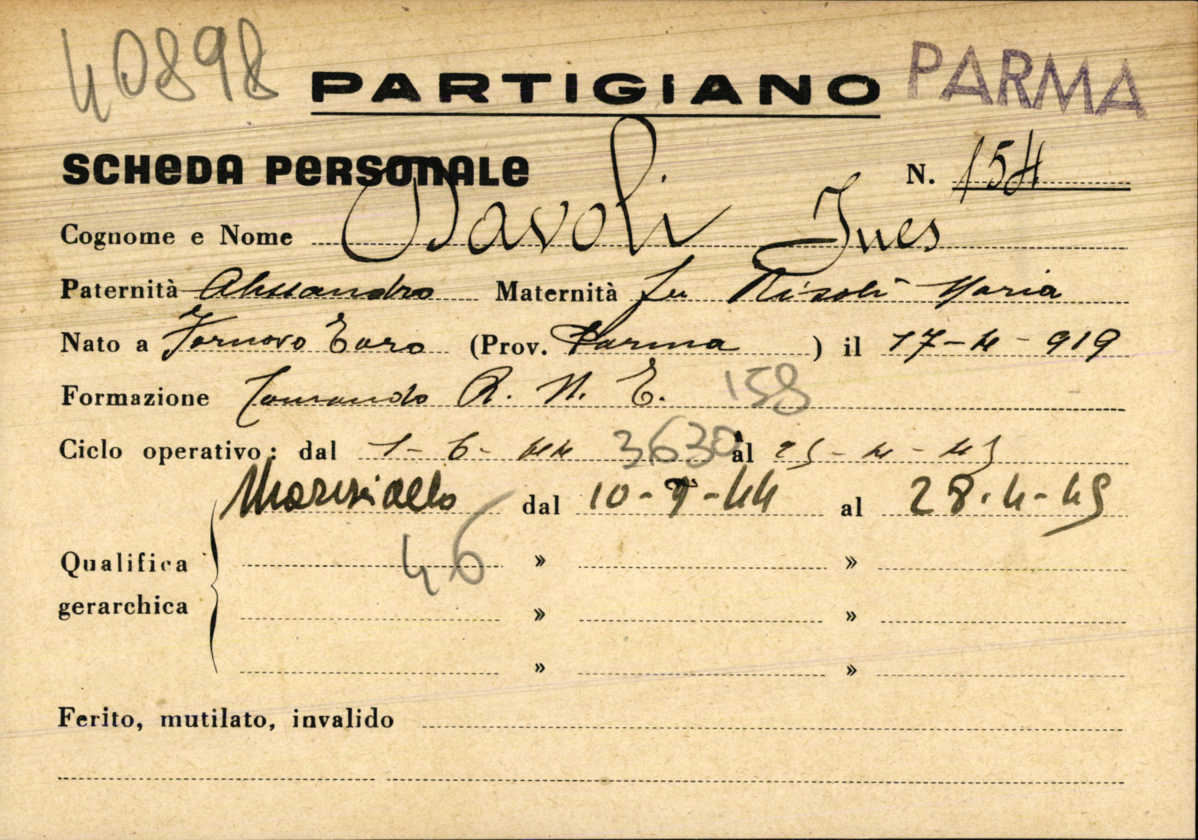 40898
PARTIGIANO PARMA
SCHEDA PERSONALE N. 154
Cognome e Nome Davoli Ines
Paternità Alessandro Maternità fu Risoli Maria
Nato a Fornovo Taro (Prov. Parma) il 17-4-919
Formazione Comando P. M. E. 158
Ciclo operativo: dal 1-6-44 3630 al 25-4-45
Maresciallo dal 10-9-44 al 28-4-45
Qualifica 46 » »
gerarchica » »
» »
Ferito, mutilato, invalido